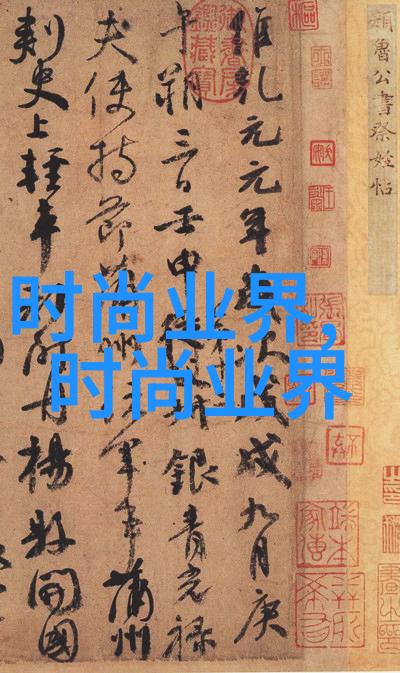 顏魯公書祭姪帖
維乾元元年歲次戊戌九月庚
午朔三日壬申從父銀青光祿
夫使持節蒲州諸軍事蒲州
刺史上輕車都尉丹楊縣開國
时尚业界,
时尚业界